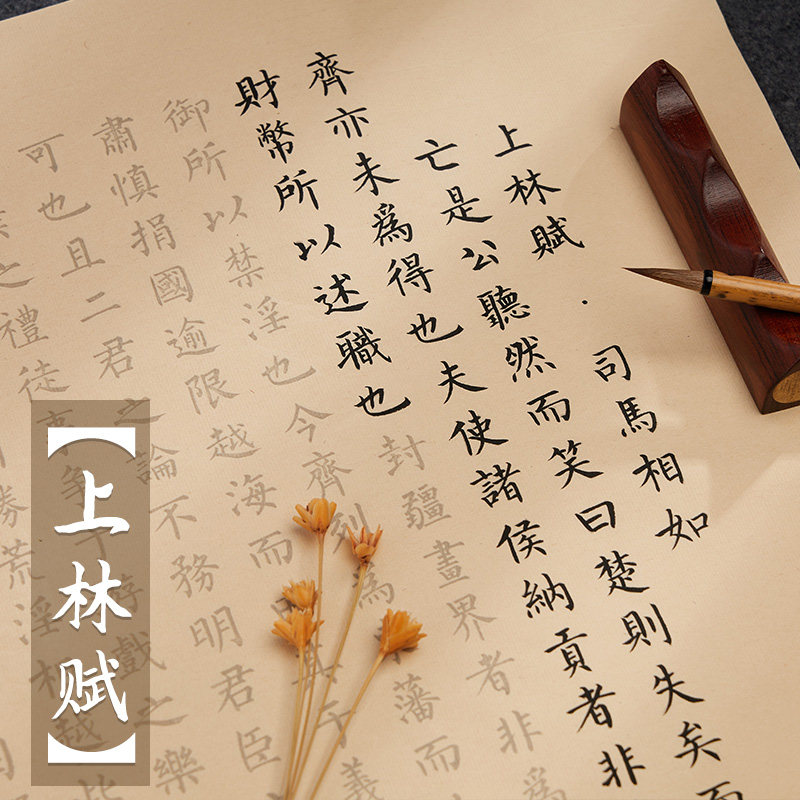 上林賦·司馬相如
亡是公聽然而笑曰楚則失矣而
齊亦未爲得也夫使諸侯納貢者非
財幣所以述職也封疆畫界者非爲
御所以禁淫也今齊列爲藩而
肅慎捐國逾限越海而其於義
可也且二君之論不務明君臣
之禮徒事爭於游戲之樂
勝荒淫相越此
【上林赋】